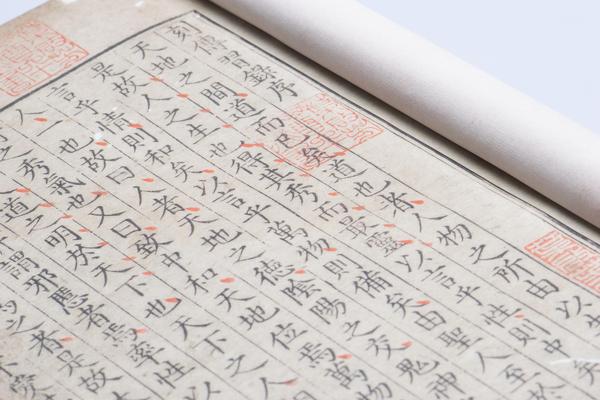 刻傳習錄序
天地之間道而已矣道也者人物之所由以生
是故人之生也得其秀而最靈以言乎性則中矣
言乎情則和矣以言乎萬物則備矣由聖人至於
人一也故曰人者天地之德陰陽之交鬼神
之秀氣也又曰致中和天地位焉萬物
道之明於天下也天下之人
謂邪慝者焉率性以
之者是故